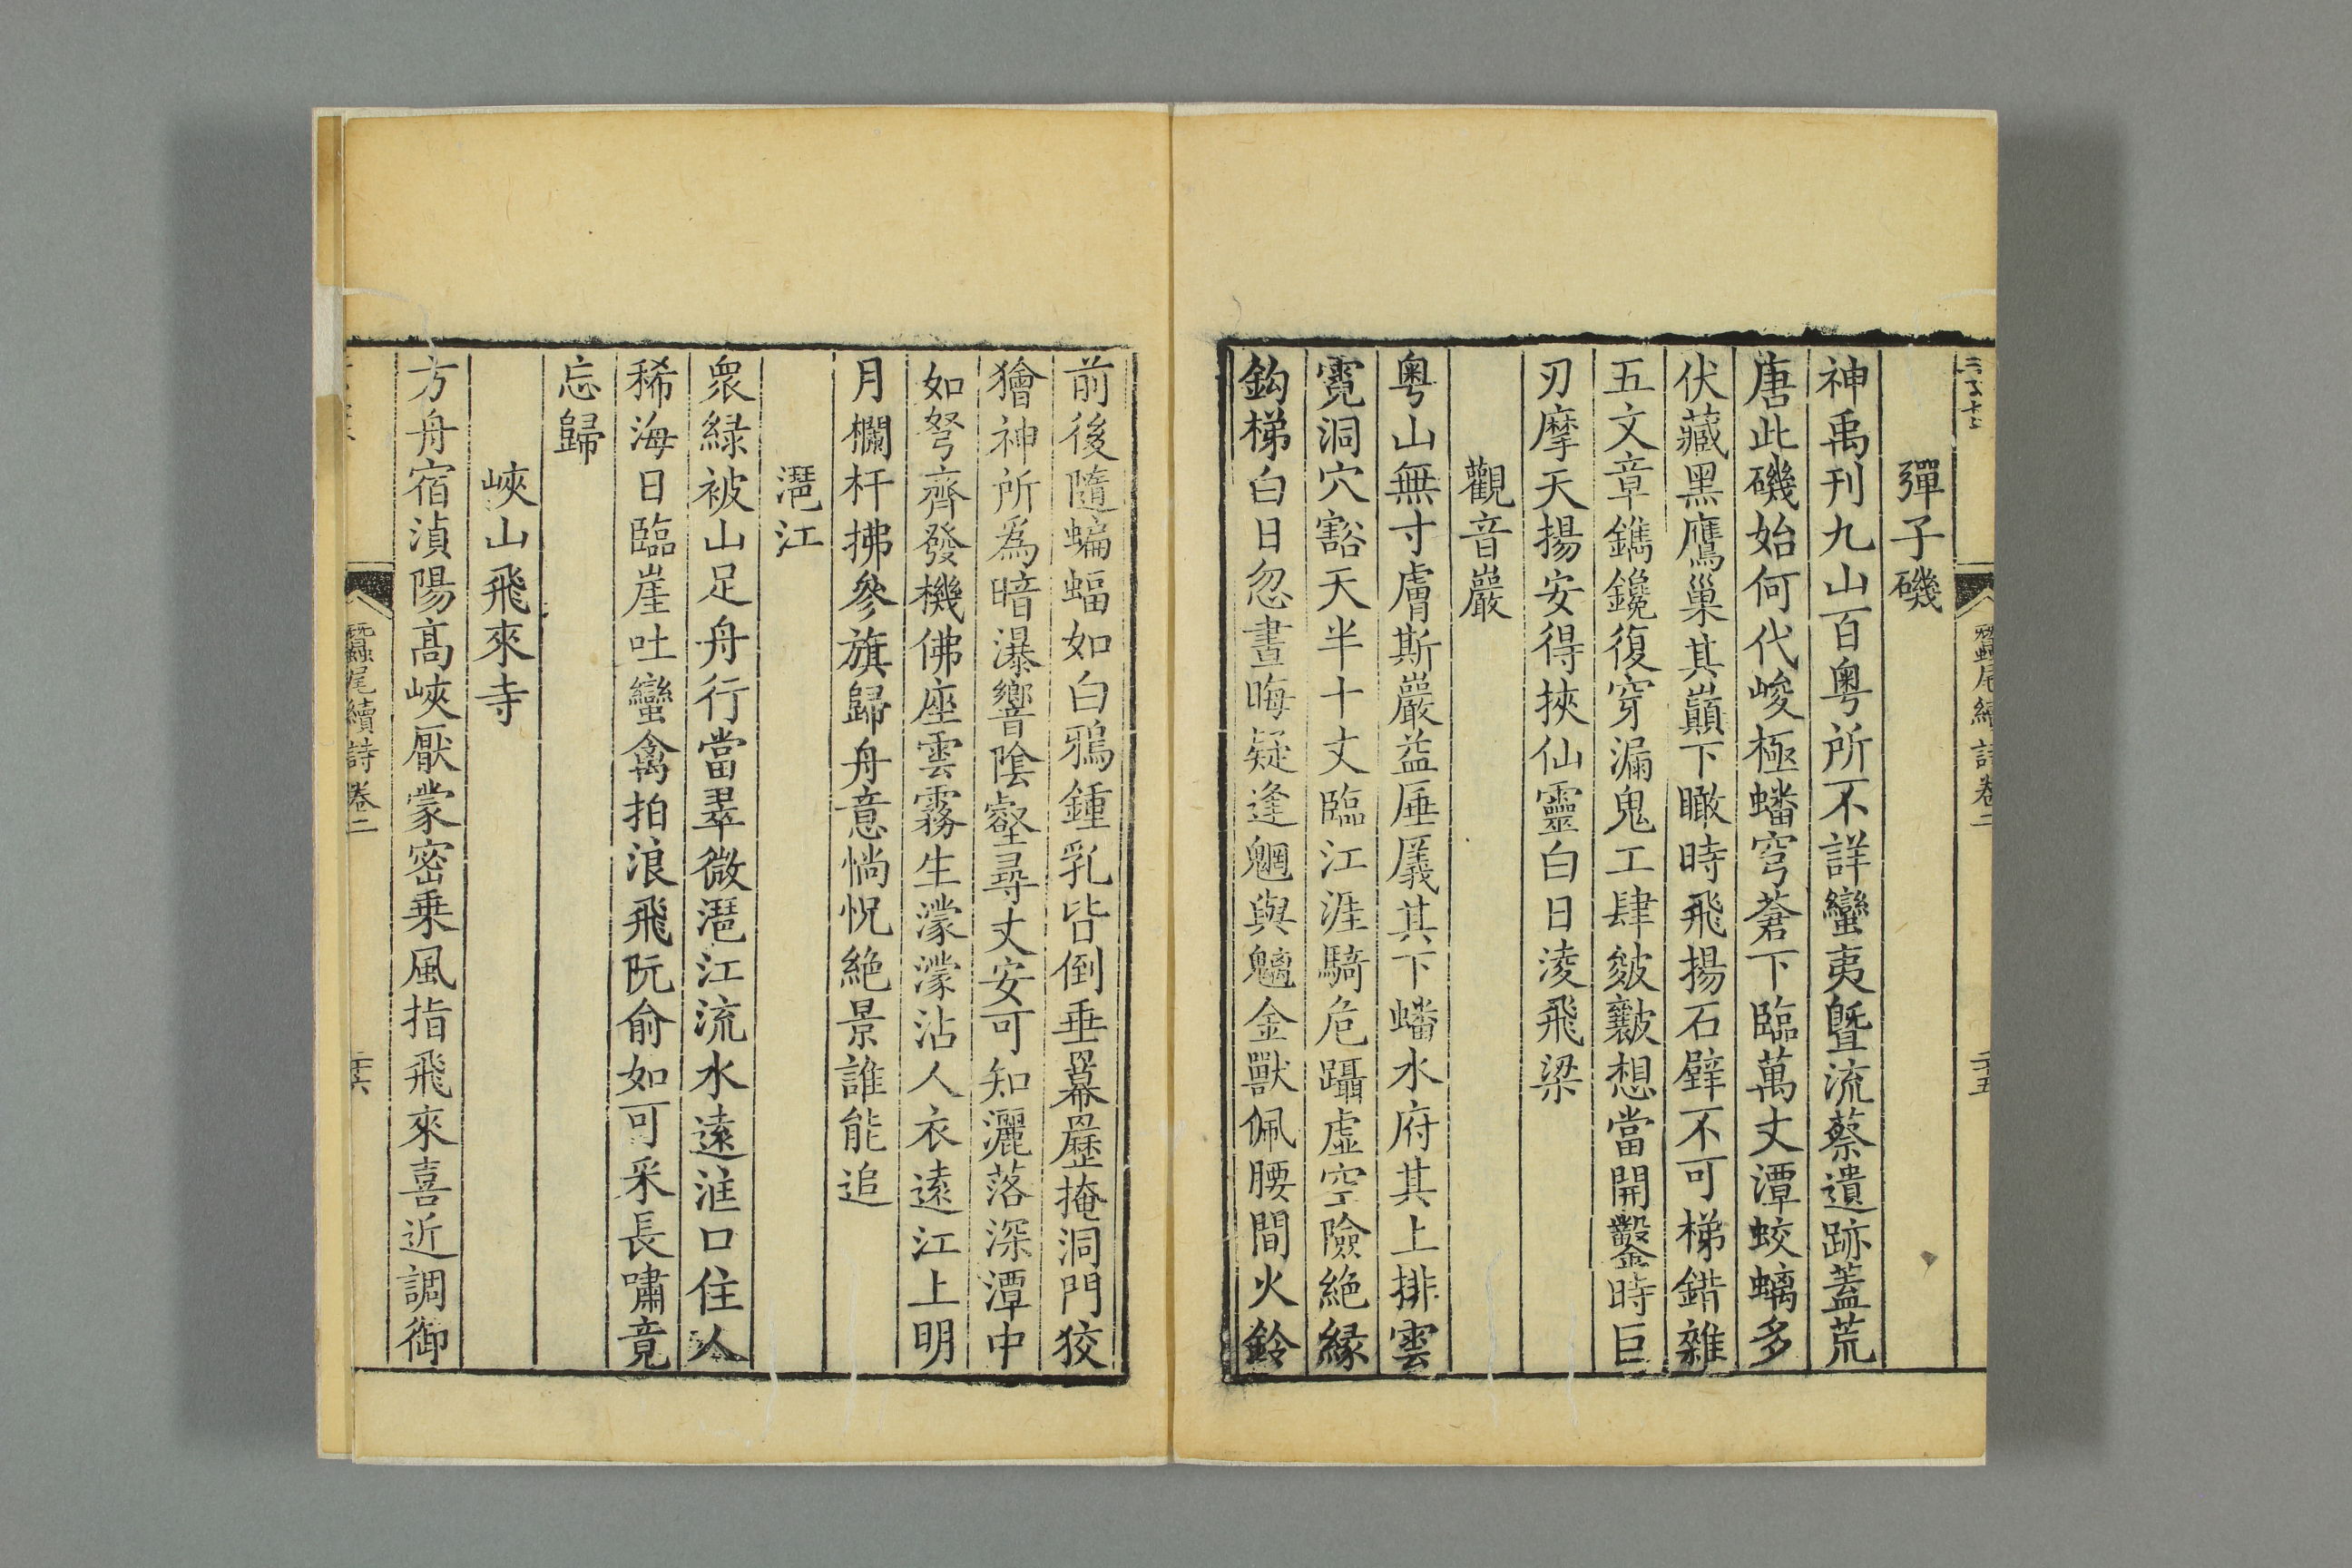 彈子磯
神禹刊九山百粵所不詳蠻夷曁流蔡遺跡蓋荒
唐此磯始何代峻極蟠穹蒼下臨萬丈潭蛟螭多
伏藏黑鷹巢其巔下瞰時飛揚石壁不可梯錯雜
五文章鐫鑱復穿漏鬼工肆皴皺想當開鑿時巨
刃摩天揚安得挾仙靈白日淩飛梁
觀音巖
粵山無寸膚斯巖益厜㕒其下蟠水府其上排雲
霓洞穴豁天半十丈臨江涯騎危躡虛空險絶緣
鈎梯白日忽晝晦疑逢魍與魑金獸佩腰間火鈴
前後隨蝙蝠如白鴉鍾乳皆倒垂羃䍥掩洞門狡
獪神所爲暗瀑響陰壑尋丈安可知灑落深潭中
如弩齊發機佛座雲霧生濛濛沾人衣遠江上明
月欄杆拂參旗歸舟意惝怳絶景誰能追
湼江
衆綠被山足舟行當翠微湼江流水遠洭口住人
稀海日臨崖吐蠻禽拍浪飛阮俞如可采長嘯竟
忘歸
峽山飛來寺
方舟宿湞陽髙峽厭蒙密乗風指飛來喜近調御
蠶尾續詩卷二
二十六
蠶尾續詩卷二
二十五